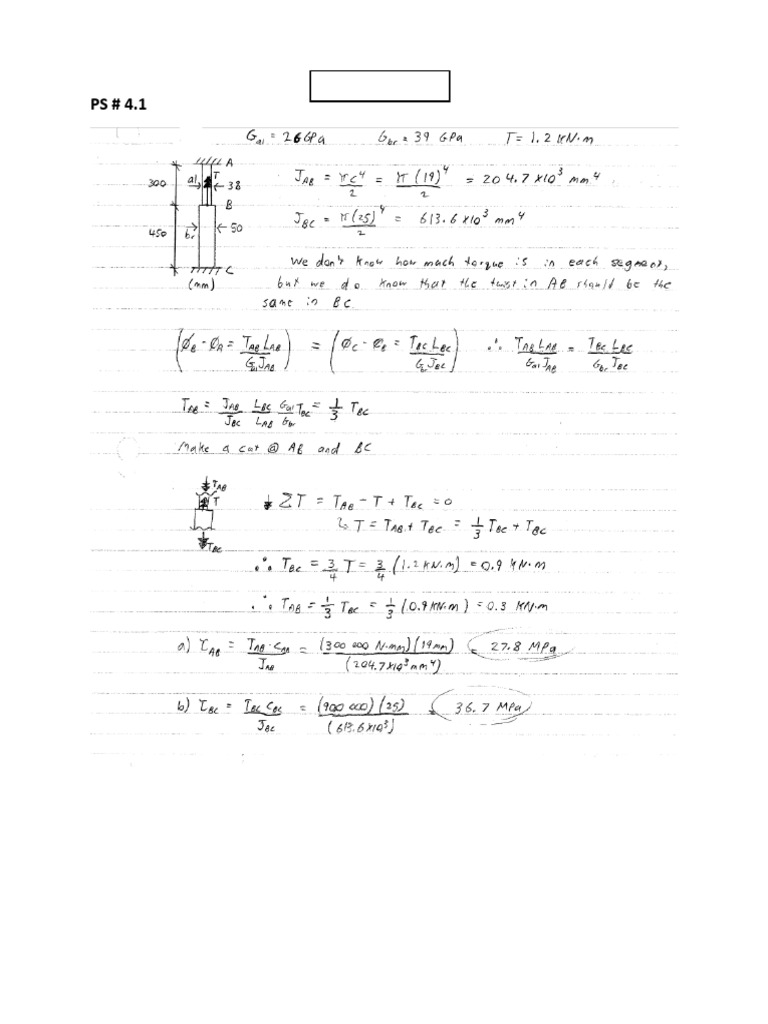 PS # 4.1
G_al = 26 GPa   G_br = 39 GPa   T = 1.2 kN·m
A
300 al T 38
B
450 br 50
C
(mm)
J_AB = πc⁴/2 = π(19)⁴/2 = 204.7 x10³ mm⁴
J_BC = π(25)⁴/2 = 613.6 x10³ mm⁴
We don't know how much torque is in each segment,
but we do know that the twist in AB should be the
same in BC.
(Ø_B - Ø_A = T_AB L_AB / G_al J_AB) = (Ø_C - Ø_B = T_BC L_BC / G_br J_BC) ∴ T_AB L_AB / G_al J_AB = T_BC L_BC / G_br J_BC
T_AB = J_AB/J_BC L_BC/L_AB G_al/G_br T_BC = 1/3 T_BC
Make a cut @ AB and BC
T_AB
T
T_BC
ΣT = T_AB - T + T_BC = 0
↳ T = T_AB + T_BC = 1/3 T_BC + T_BC
∴ T_BC = 3/4 T = 3/4 (1.2 kN·m) = 0.9 kN·m
∴ T_AB = 1/3 T_BC = 1/3 (0.9 kN·m) = 0.3 kN·m
a) τ_AB = T_AB·C_AB / J_AB = (300 000 N·mm)(19mm) / (204.7x10³ mm⁴) = 27.8 MPa
b) τ_BC = T_BC C_BC / J_BC = (900 000)(25) / (613.6x10³) = 36.7 MPa